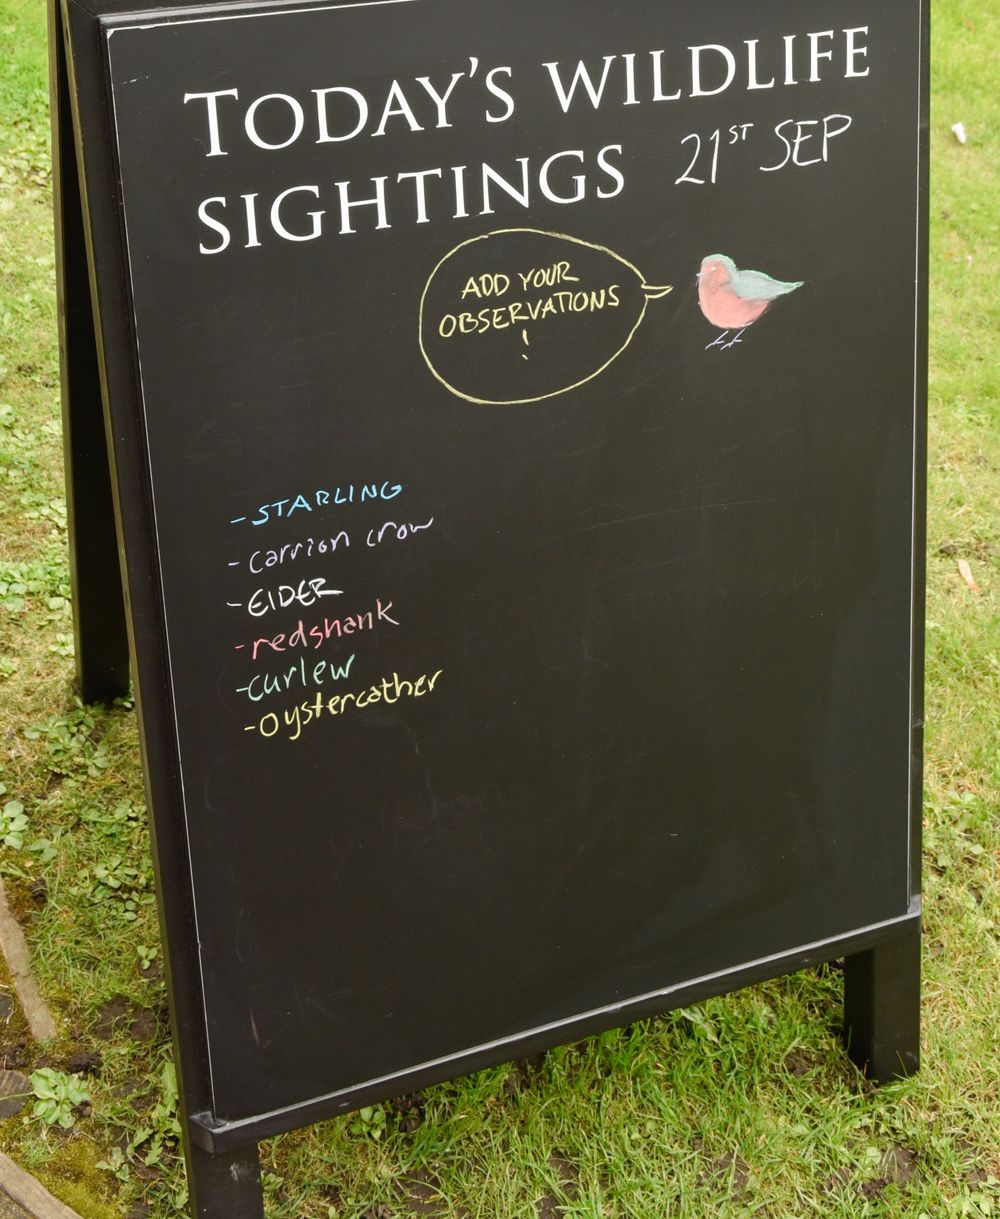 TODAY'S WILDLIFE
SIGHTINGS 21ST SEP
ADD YOUR
OBSERVATIONS
!
- STARLING
- carrion crow
- EIDER
- redshank
- curlew
- oystercather